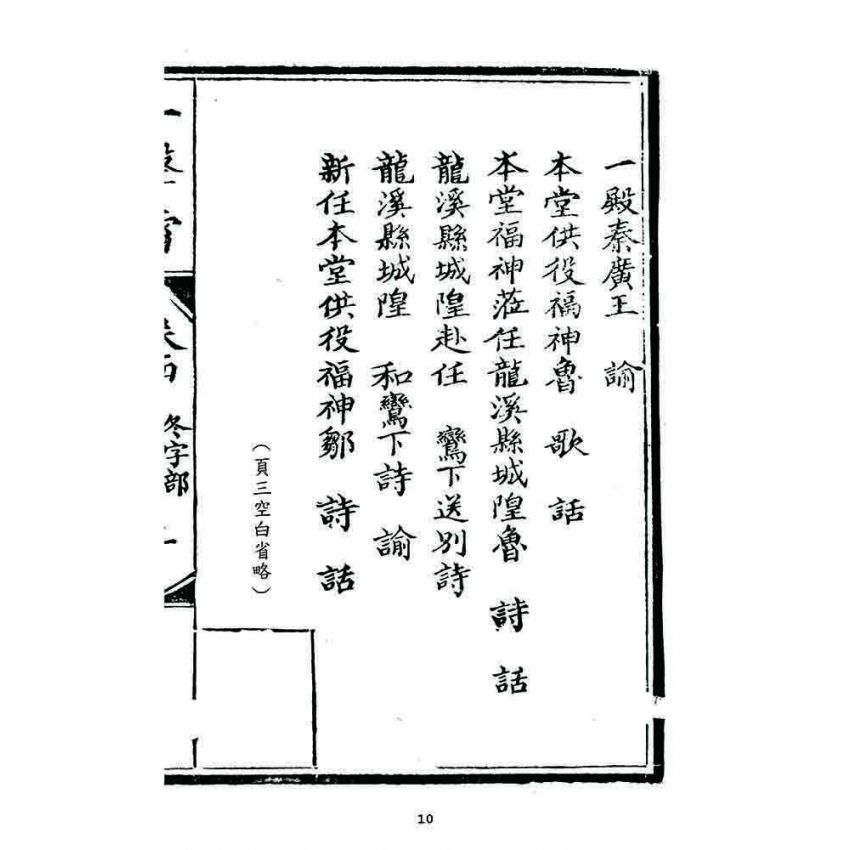 一殿秦廣王　諭
本堂供役福神魯　歌　話
本堂福神蒞任龍溪縣城隍魯　詩　話
龍溪縣城隍赴任　鸞下送別詩
龍溪縣城隍　和鸞下詩　諭
新任本堂供役福神鄒　詩　話
（頁三空白省略）
冬字部　一
10